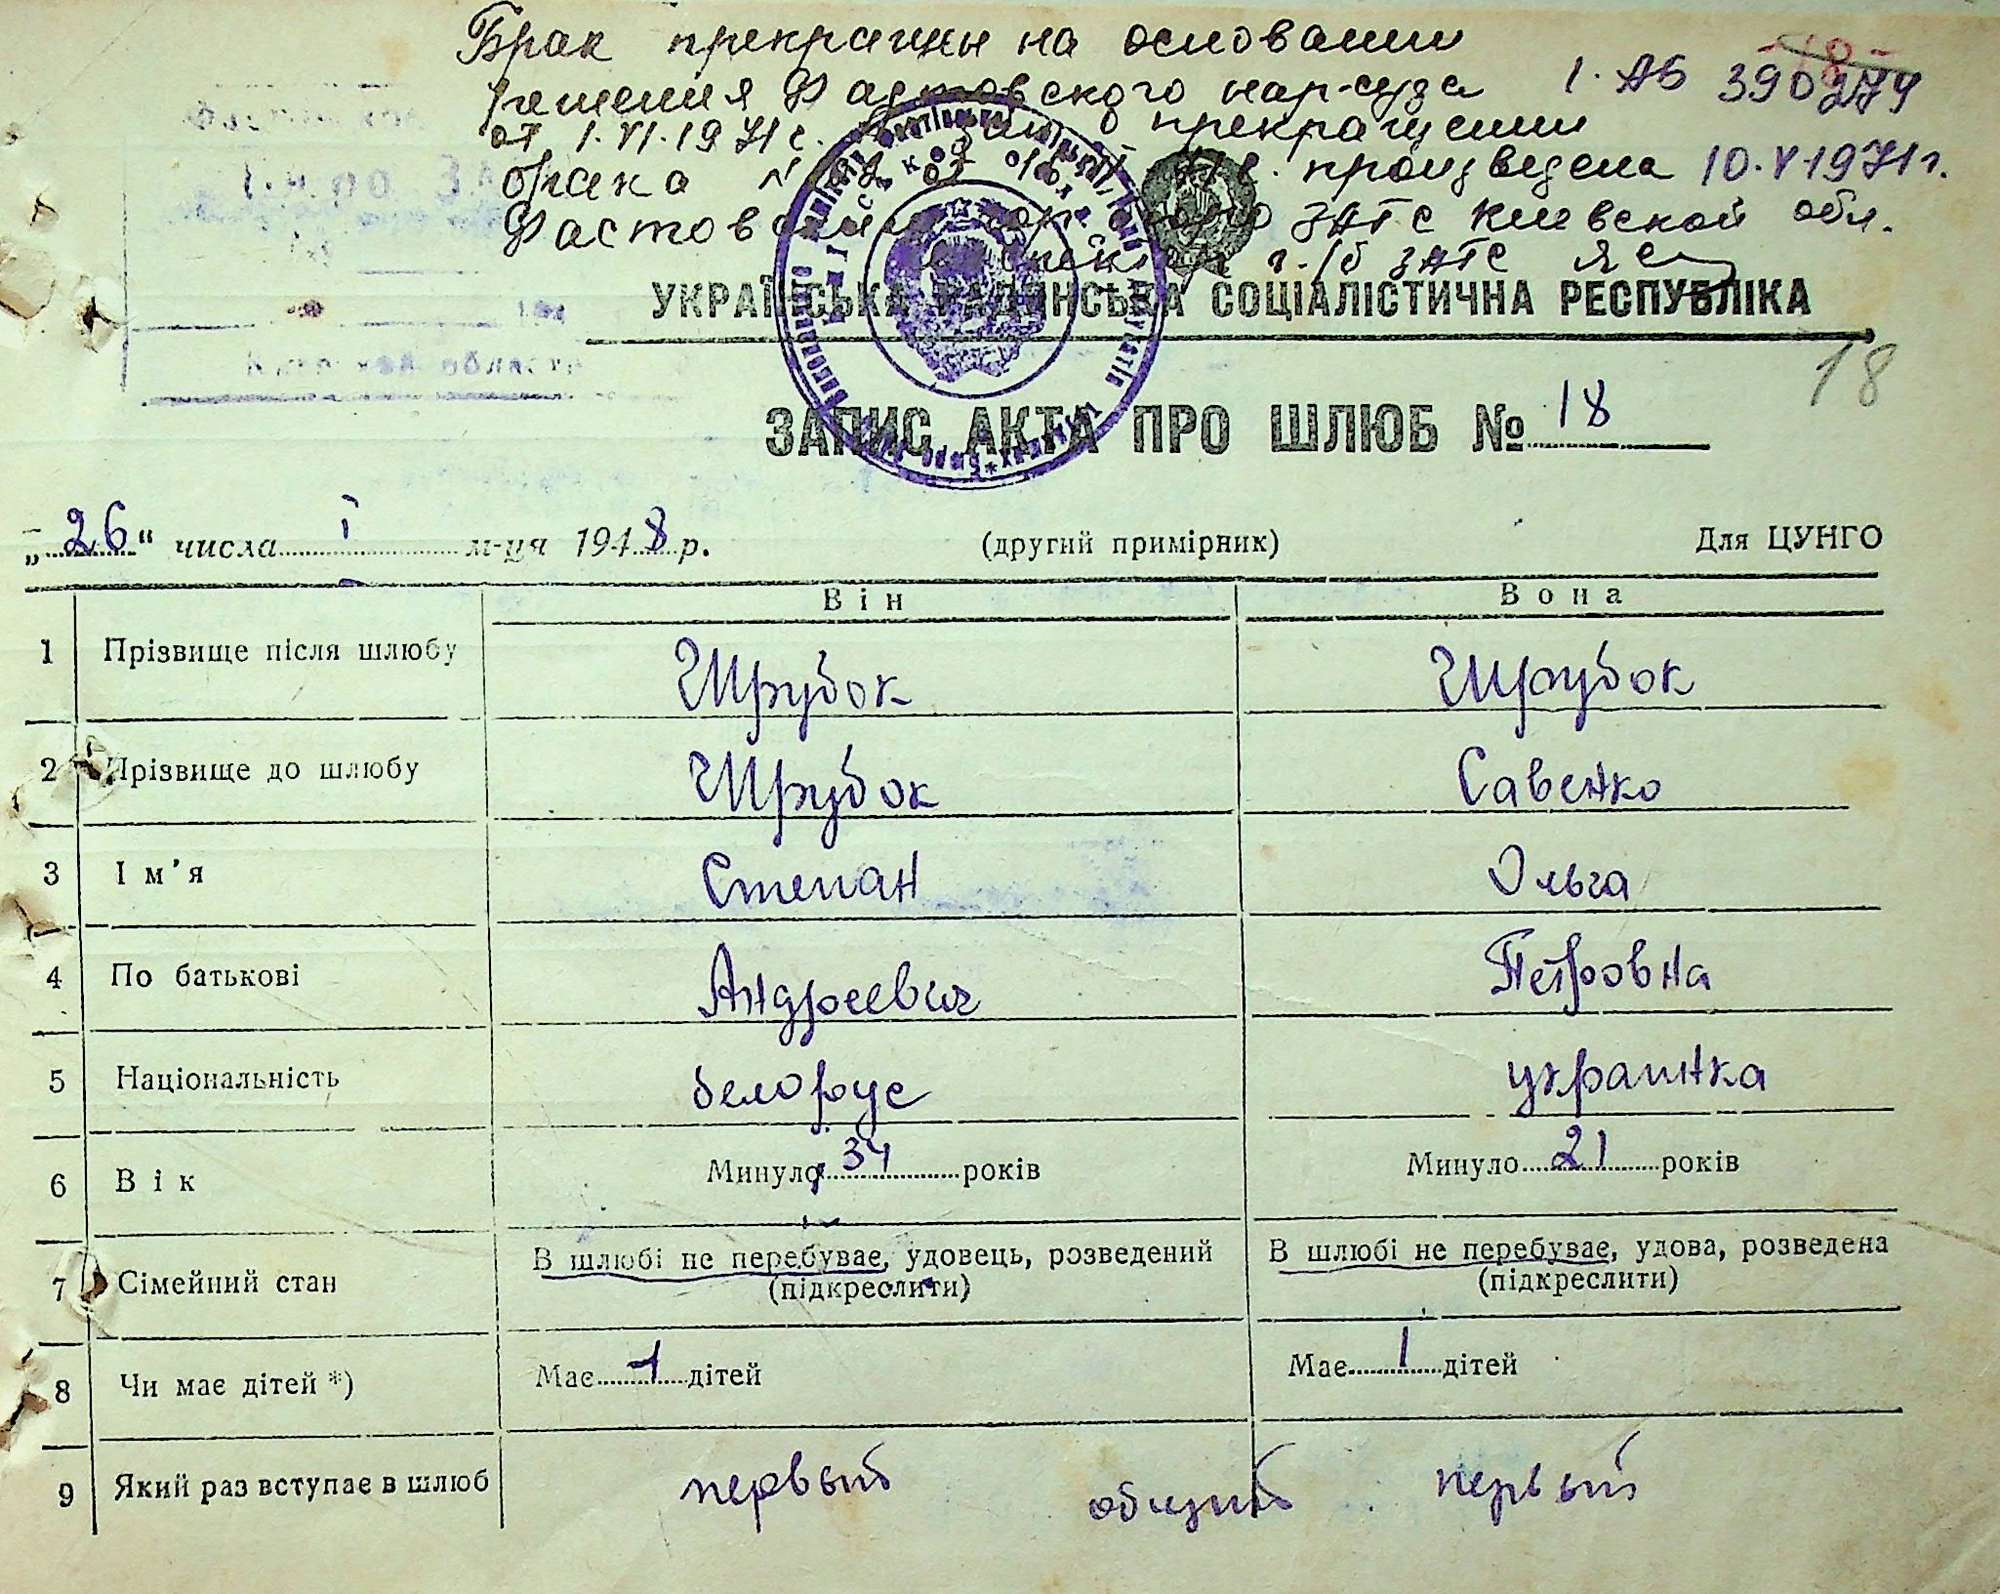 Брак прекращен на основании
решения Фастовского нар-суда І-АБ 390274
от 1.VI.1971г. прекращении
брака № произведена 10.V 1971г.
Фастовским ЗАГС Киевской обл.
ЗАГС
УКРАЇНСЬКА РАДЯНСЬКА СОЦІАЛІСТИЧНА РЕСПУБЛІКА
18
ЗАПИС АКТА ПРО ШЛЮБ № 18
„26“ числа І м-ця 1948 р. (другий примірник) Для ЦУНГО
Він Вона
1 Прізвище після шлюбу Шрубок Шрубок
2 Прізвище до шлюбу Шрубок Савенко
3 Ім’я Степан Ольга
4 По батькові Андреевич Петровна
5 Національність белорус украинка
6 Вік Минуло 34 років Минуло 21 років
7 Сімейний стан В шлюбі не перебуває, удовець, розведений (підкреслити) В шлюбі не перебуває, удова, розведена (підкреслити)
8 Чи має дітей *) Має 1 дітей Має 1 дітей
9 Який раз вступає в шлюб первый общий первый